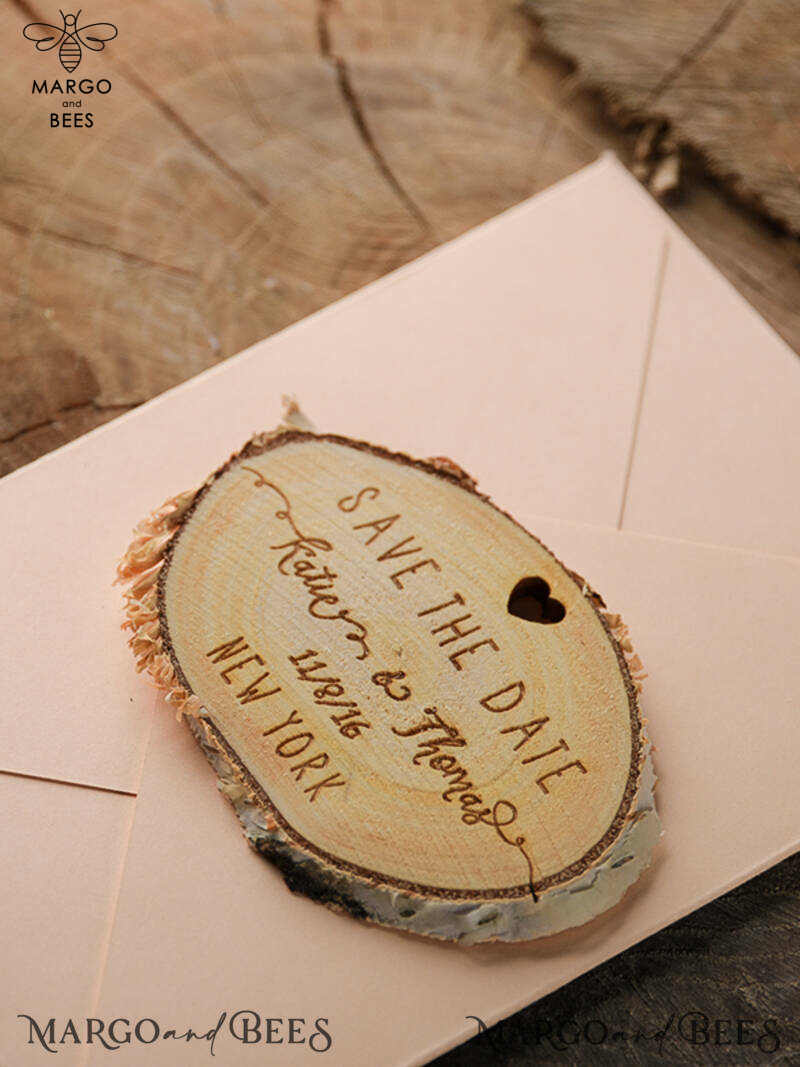 MARGO
and
BEES
SAVE THE DATE
Katie
& Thomas
11/8/16
NEW YORK
MARGO and BEES
MARGO and BEES